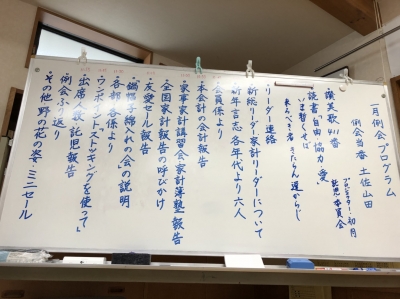 一月例会プログラム
例会当番 土佐山田
プロシスター 初月
託児 委員会
讃美歌 411番
読書「自由・協力・愛」
いま暫くせば
来るべき者きたらん遅からじ
・リーダー連絡
新総リーダー家計リーダーについて
新年言志 各年代より六人
・会員係より
・本会計の会計報告
・家事家計講習会・家計簿塾報告
・全国家計報告の呼びかけ
・友愛セール報告
・鍋帽子綿入れの会の説明
・各部各係より
・ワンポイント"ストッキングを使って"
・出席人数、託児報告
例会ふり返り
・その他 野の花の姿 ミニセール